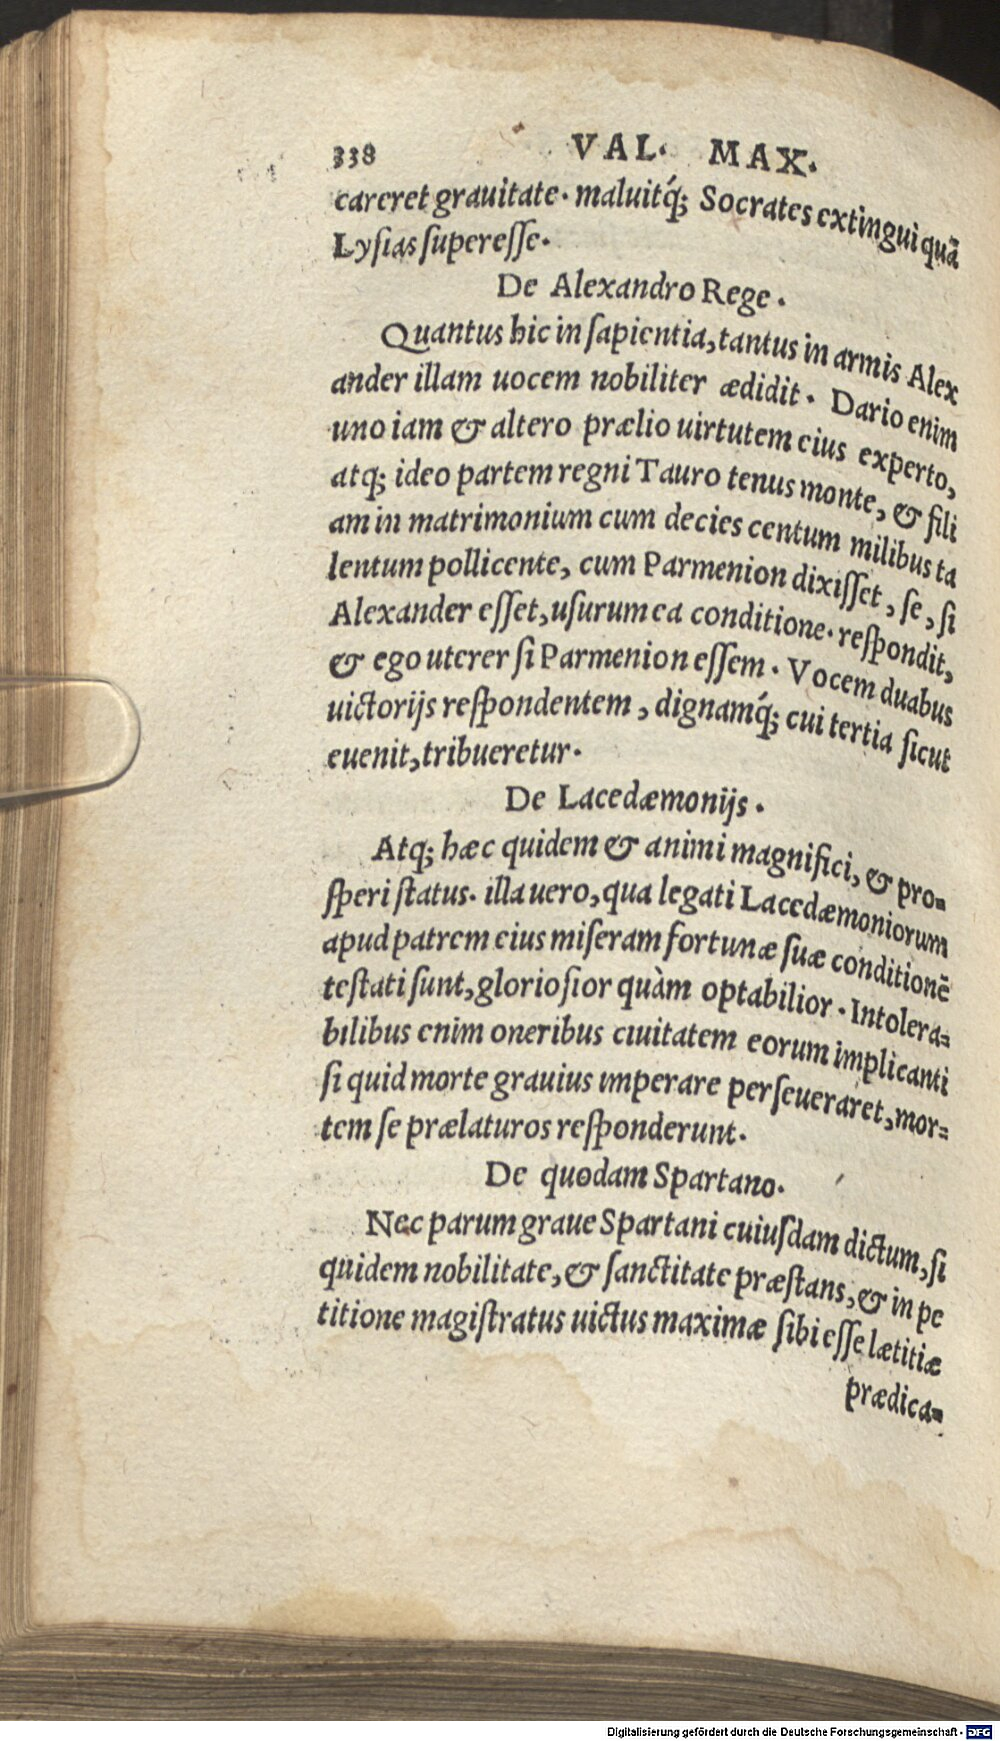 338 VAL. MAX.
careret grauitate. maluitq́; Socrates extingui quã
Lyſias ſupereſſe.
De Alexandro Rege.
Quantus hic in ſapientia, tantus in armis Alex
ander illam uocem nobiliter ædidit. Dario enim
uno iam & altero prælio uirtutem eius experto,
atq; ideo partem regni Tauro tenus monte, & fili
am in matrimonium cum decies centum milibus ta
lentum pollicente, cum Parmenion dixiſſet, ſe, ſi
Alexander eſſet, uſurum ea conditione. reſpondit,
& ego uterer ſi Parmenion eſſem. Vocem duabus
uictorijs reſpondentem, dignamq́; cui tertia ſicut
euenit, tribueretur.
De Lacedæmonijs.
Atq; hæc quidem & animi magnifici, & pro-
ſperi ſtatus. illa uero, qua legati Lacedæmoniorum
apud patrem eius miſeram fortunæ ſuæ conditionẽ
teſtati ſunt, glorioſior quàm optabilior. Intolera-
bilibus enim oneribus ciuitatem eorum implicanti
ſi quid morte grauius imperare perſeueraret, mor-
tem ſe prælaturos reſponderunt.
De quodam Spartano.
Nec parum graue Spartani cuiuſdam dictum, ſi
quidem nobilitate, & ſanctitate præſtans, & in pe
titione magiſtratus uictus maximæ ſibi eſſe lætitiæ
prædica-
Digitalisierung gefördert durch die Deutsche Forschungsgemeinschaft - DFG